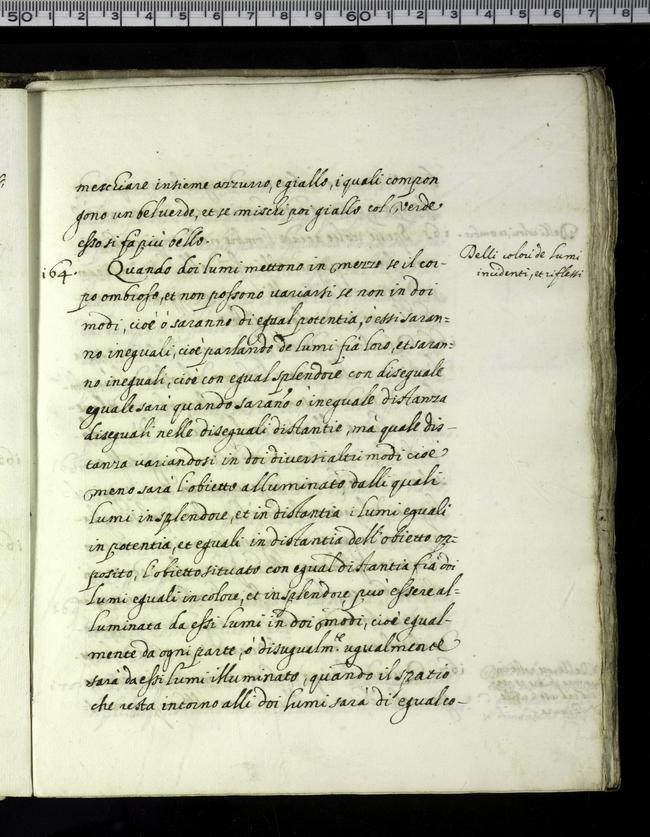 meschiare insieme azzurro, e giallo, i quali compon
gono un bel verde, et se mischi poi giallo col verde
esso si fa più bello.
164. Quando doi lumi mettono in mezzo se il cor-
po ombroso, et non possono variarsi se non in doi
modi, cioè ò saranno di egual potentia, ò essi saran-
no ineguali, cioè parlando de lumi frà loro, et saran-
no ineguali, cioè con egual splendore con diseguale
eguale sarà quando saranno ò ineguale distanza
diseguali nelle diseguali distantie, mà quale dis-
tanza variandosi in doi diversi altri modi cioè
meno sarà l'obietto alluminato dalli quali
lumi in splendore, et in distantia i lumi eguali
in potentia, et eguali in distantia dell'obietto op-
posito, l'obietto situato con egual distantia frà doi
lumi eguali in colore, et in splendore può essere al-
luminata da essi lumi in doi modi, cioè egual-
mente da ogni parte, ò disugualm.te ugualmente
sarà da essi lumi illuminato, quando il spatio
che resta intorno alli doi lumi sarà di egual co-
Delli colori de lumi
incidenti, et riflessi
50 1 2 3 4 5 6 7 8 9 60 1 2 3 4 5 6 7 8